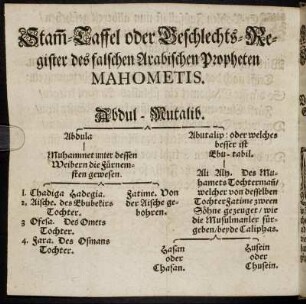 Stam̄-Taffel oder Geschlechts-Re-
gister des falschen Arabischen Propheten
MAHOMETIS.
Abdul-Mutalib.
Abdula
Muhammet unter dessen
Weibern die Fürnem-
sten gewesen.
1. Chadiga Hadegia.
2. Aische. des Ebubekirs
Tochter.
3 Ofesa. Des Omers
Tochter.
4. Zara. Des Osmans
Tochter.
Fatime. Von
der Aische ge-
bohren.
Abutalip: oder welches
besser ist
Ebu-talil.
Ali Alty. Des Ma-
hamets Tochtermañ/
welcher von desselben
Tochter Fatime zween
Söhne gezeuget/ wie
die Musulmanier für-
geben/ beyde Caliphas.
Hasan
oder
Chasan.
Husein
oder
Chusein.